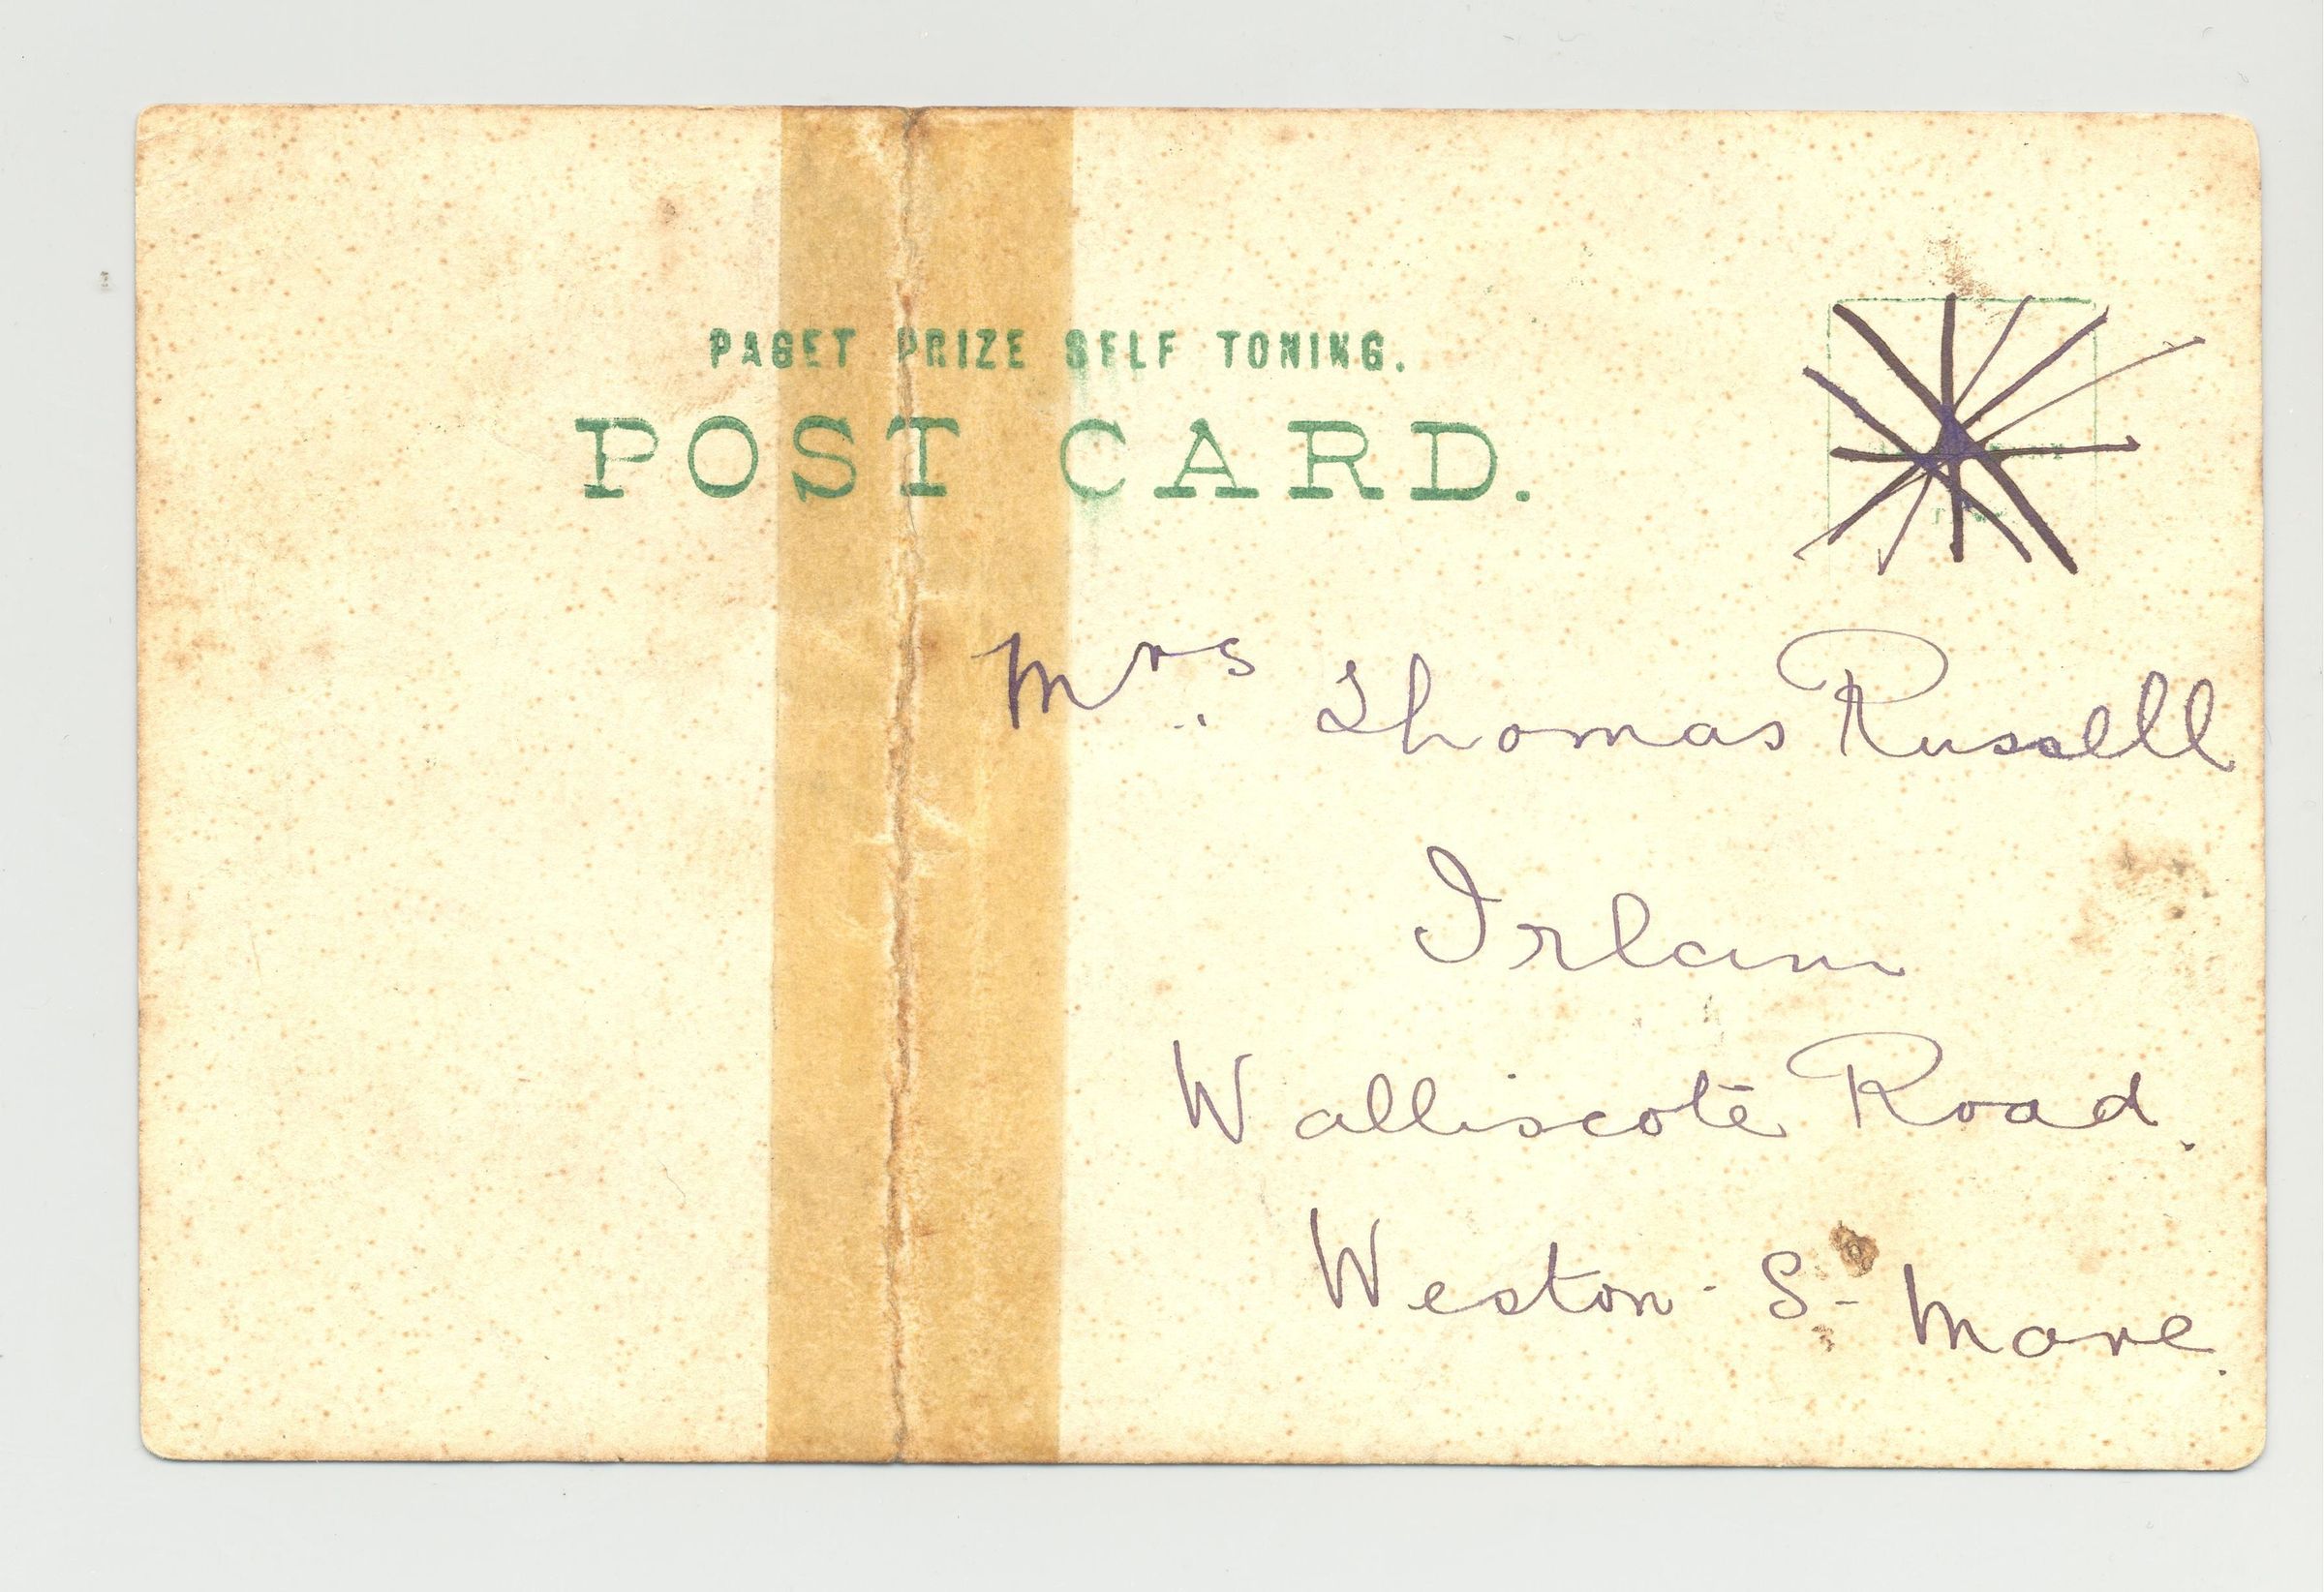 PAGET PRIZE SELF TONING.
POST CARD.
Mrs Thomas Russell
Irlam
Walliscote Road.
Weston-S-Mare.